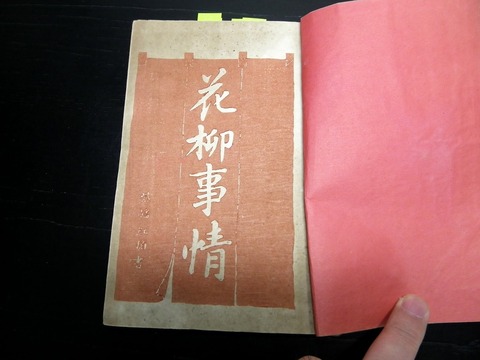 花柳事情